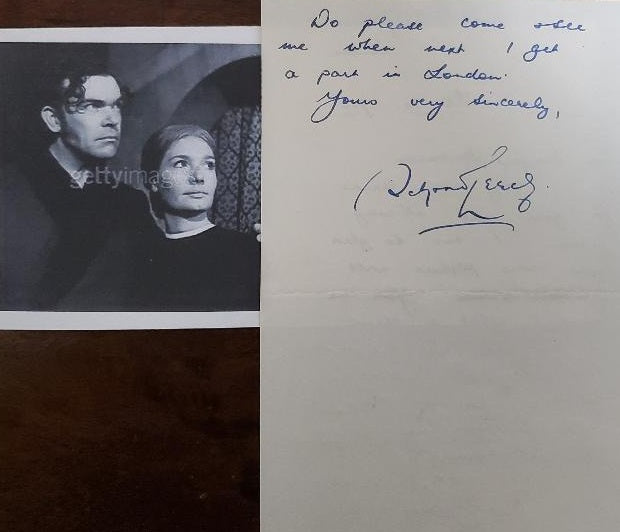 gettyimages
Do please come & see
me when next I get
a part in London.
Yours very sincerely,
Richard Leech.